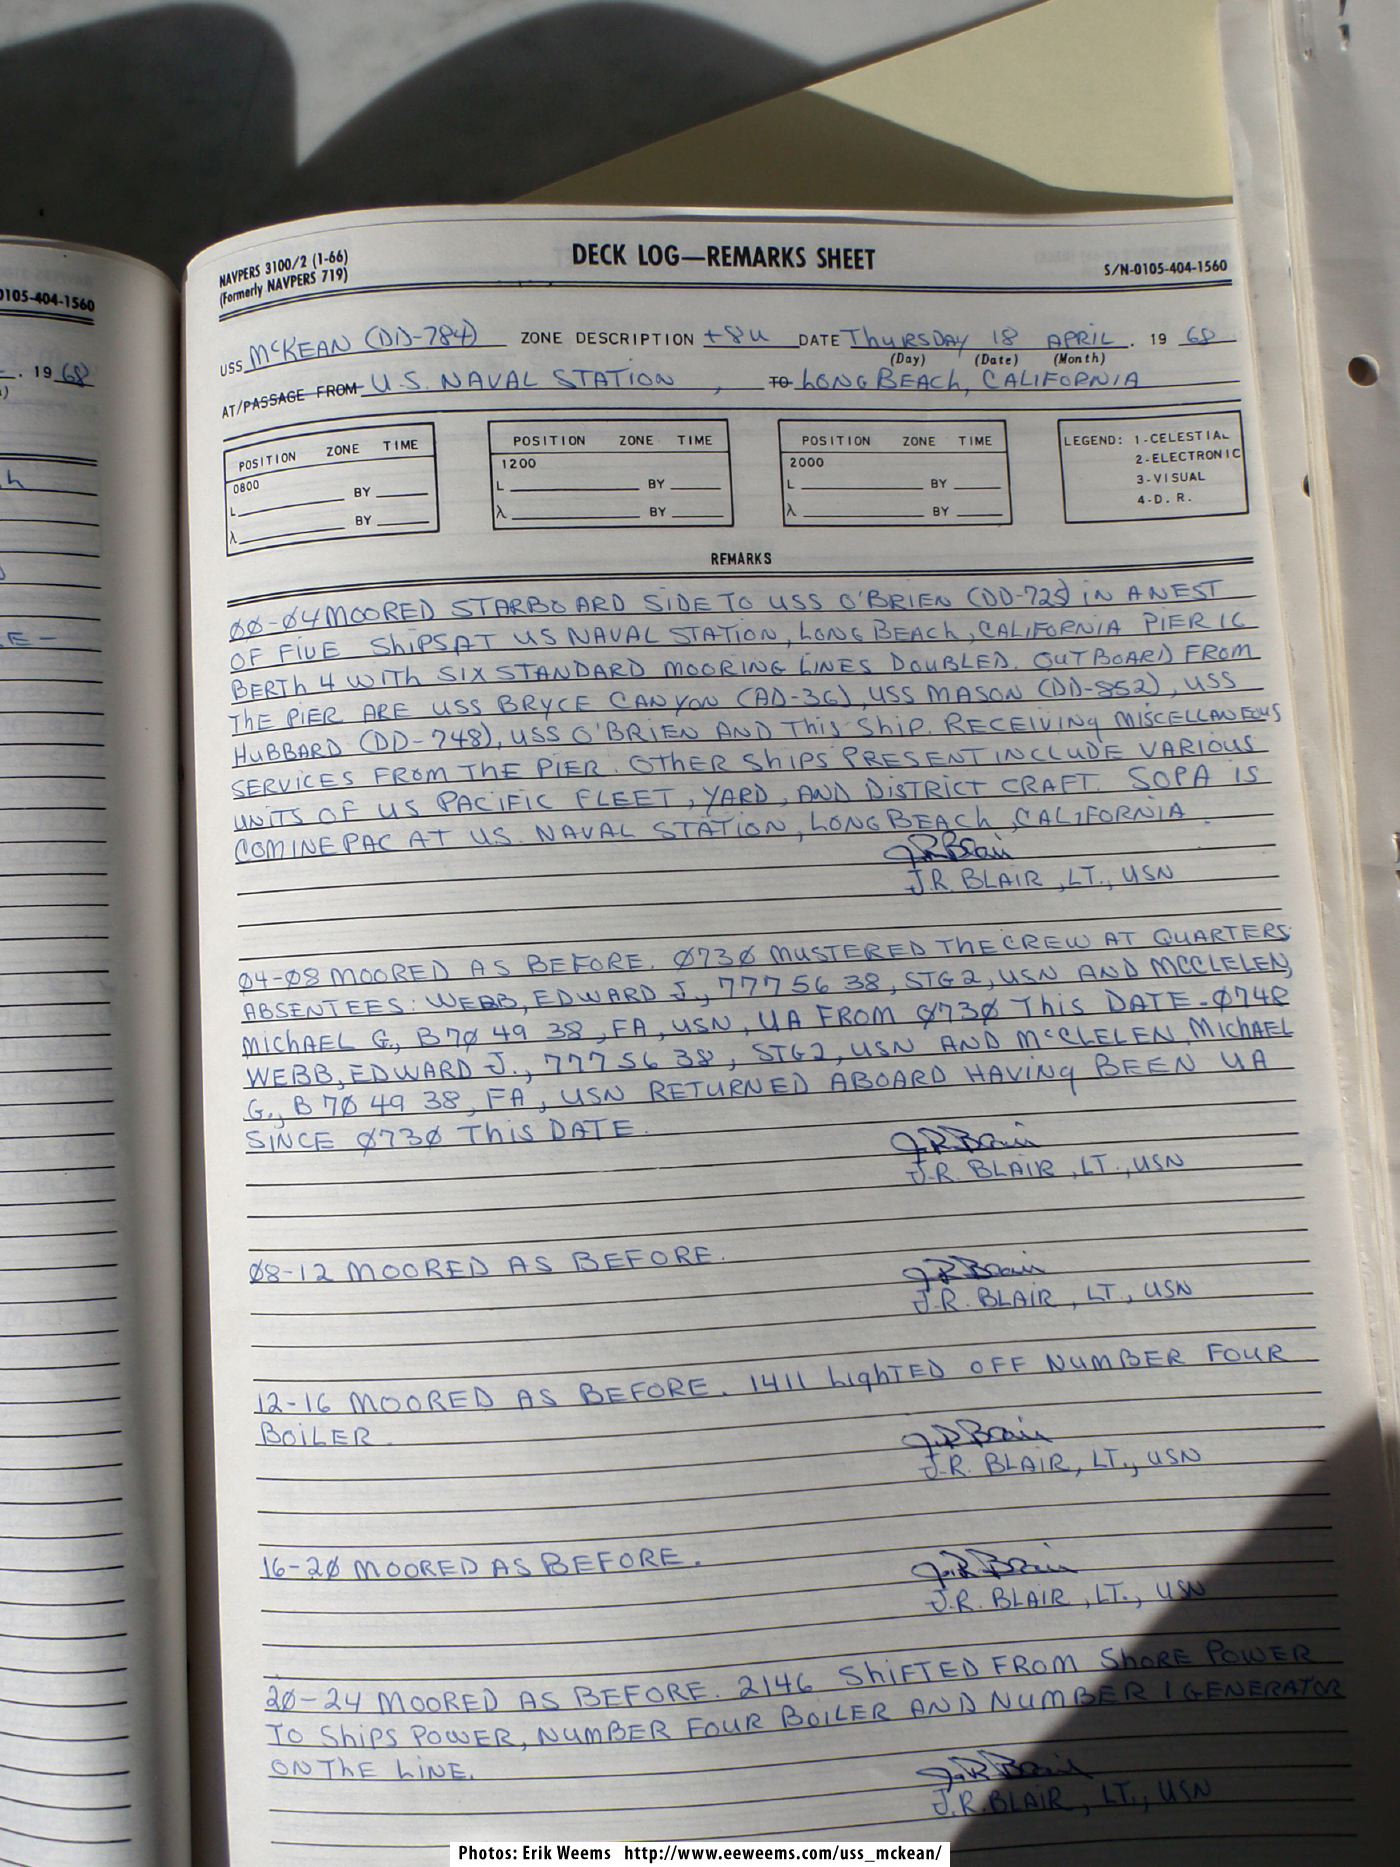 0105-404-1560
. 19 68
NAVPERS 3100/2 (1-66)
(Formerly NAVPERS 719)
DECK LOG—REMARKS SHEET
S/N-0105-404-1560
USS McKEAN (DD-784) ZONE DESCRIPTION +8U DATE THURSDAY 18 APRIL . 19 68
(Day) (Date) (Month)
AT/PASSAGE FROM U.S. NAVAL STATION , TO LONG BEACH, CALIFORNIA
POSITION ZONE TIME
0800
L BY
λ BY
POSITION ZONE TIME
1200
L BY
λ BY
POSITION ZONE TIME
2000
L BY
λ BY
LEGEND: 1-CELESTIAL
2-ELECTRONIC
3-VISUAL
4-D. R.
REMARKS
ØØ-Ø4 MOORED STARBOARD SIDE TO USS O'BRIEN (DD-725) IN A NEST
OF FIVE SHIPS AT US NAVAL STATION, LONG BEACH, CALIFORNIA PIER 16
BERTH 4 WITH SIX STANDARD MOORING LINES DOUBLED. OUTBOARD FROM
THE PIER ARE USS BRYCE CANYON (AD-36), USS MASON (DD-852), USS
HUBBARD (DD-748), USS O'BRIEN AND THIS SHIP. RECEIVING MISCELLANEOUS
SERVICES FROM THE PIER. OTHER SHIPS PRESENT INCLUDE VARIOUS
UNITS OF US PACIFIC FLEET, YARD, AND DISTRICT CRAFT. SOPA IS
COMINEPAC AT U.S. NAVAL STATION, LONG BEACH, CALIFORNIA.
J R Blair
J.R. BLAIR, LT., USN
Ø4-Ø8 MOORED AS BEFORE. Ø73Ø MUSTERED THE CREW AT QUARTERS
ABSENTEES: WEBB, EDWARD J., 777 56 38, STG2, USN AND MCCLELEN,
MICHAEL G., B7Ø 49 38, FA, USN, UA FROM Ø73Ø THIS DATE. Ø748
WEBB, EDWARD J., 777 56 38, STG2, USN AND McCLELEN, MICHAEL
G., B 7Ø 49 38, FA, USN RETURNED ABOARD HAVING BEEN UA
SINCE Ø73Ø THIS DATE.
J R Blair
J.R. BLAIR, LT., USN
Ø8-12 MOORED AS BEFORE.
J R Blair
J.R. BLAIR, LT., USN
12-16 MOORED AS BEFORE. 1411 LIGHTED OFF NUMBER FOUR
BOILER.
J R Blair
J.R. BLAIR, LT., USN
16-2Ø MOORED AS BEFORE.
J.R. Blair
J.R. BLAIR, LT., USN
2Ø-24 MOORED AS BEFORE. 2146 SHIFTED FROM SHORE POWER
TO SHIPS POWER, NUMBER FOUR BOILER AND NUMBER 1 GENERATOR
ON THE LINE.
J.R Blair
J.R. BLAIR, LT., USN
Photos: Erik Weems http://www.eeweems.com/uss_mckean/